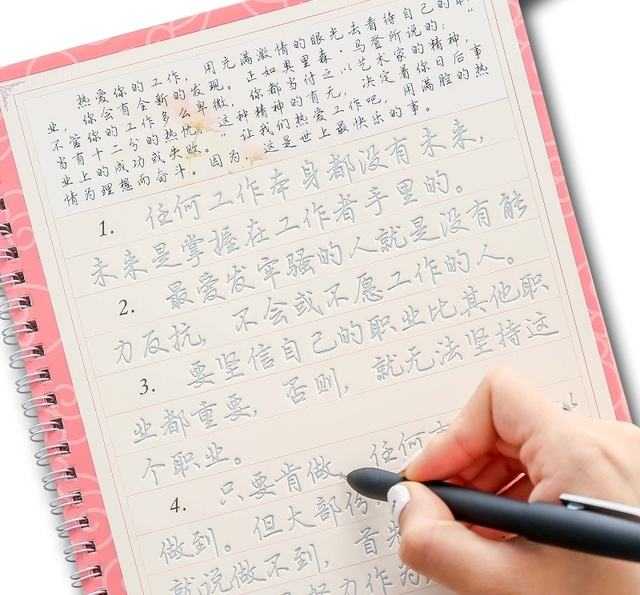 热爱你的工作，用充满激情的眼光去看待自己的职
业，你会有全新的发现。正如奥里森·马登所说的：“
不管你的工作多么卑微，你都当付之以艺术家的精神，
当有十二分的热忱。”这种精神的有无，决定着你日后事
业上的成功或失败。让我们热爱工作吧，用满腔的热
情为理想而奋斗。因为，这是世上最快乐的事。
1. 任何工作本身都没有未来，
未来是掌握在工作者手里的。
2. 最爱发牢骚的人就是没有能
力反抗，不会或不愿工作的人。
3. 要坚信自己的职业比其他职
业都重要，否则，就无法坚持这
个职业。
4. 只要肯做，任何
做到。但大部份
就说做不到，首先
努力作为